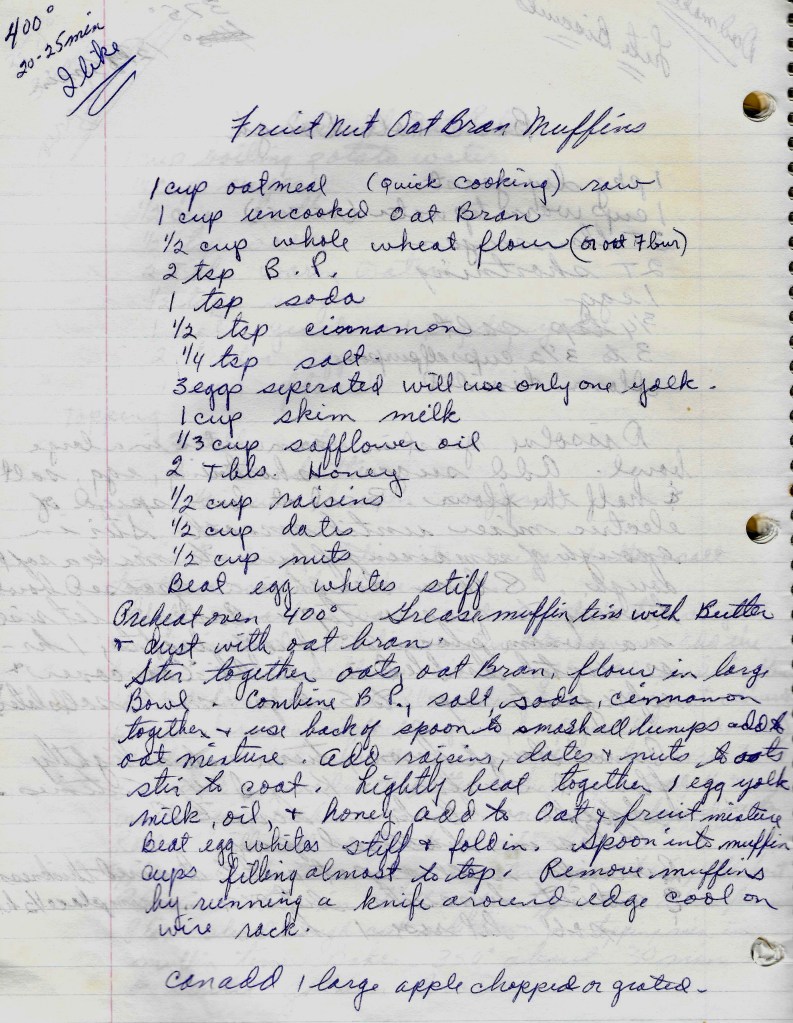 400°
20-25 min
I like
Fruit Nut Oat Bran Muffins
1 cup oatmeal (quick cooking) raw
1 cup uncooked Oat Bran
1/2 cup whole wheat flour (or oat flour)
2 tsp B.P.
1 tsp soda
1/2 tsp cinnamon
1/4 tsp salt
3 eggs seperated will use only one yolk.
1 cup skim milk
1/3 cup safflower oil
2 Tbls. Honey
1/2 cup raisins
1/2 cup dates
1/2 cup nuts
Beat egg whites stiff
Preheat oven 400° Grease muffin tins with Butter
+ dust with oat bran.
Stir together oats, oat Bran, flour in large
Bowl. Combine B.P., salt, soda, cinnamon
together + use back of spoon to smash all lumps add to
oat mixture. Add raisins, dates + nuts to oats
stir to coat. Lightly beat together 1 egg yolk
milk, oil, + honey add to Oat & fruit mixture
Beat egg whites stiff + fold in. Spoon into muffin
cups filling almost to top. Remove muffins
by running a knife around edge cool on
wire rack.
can add 1 large apple chopped or grated.